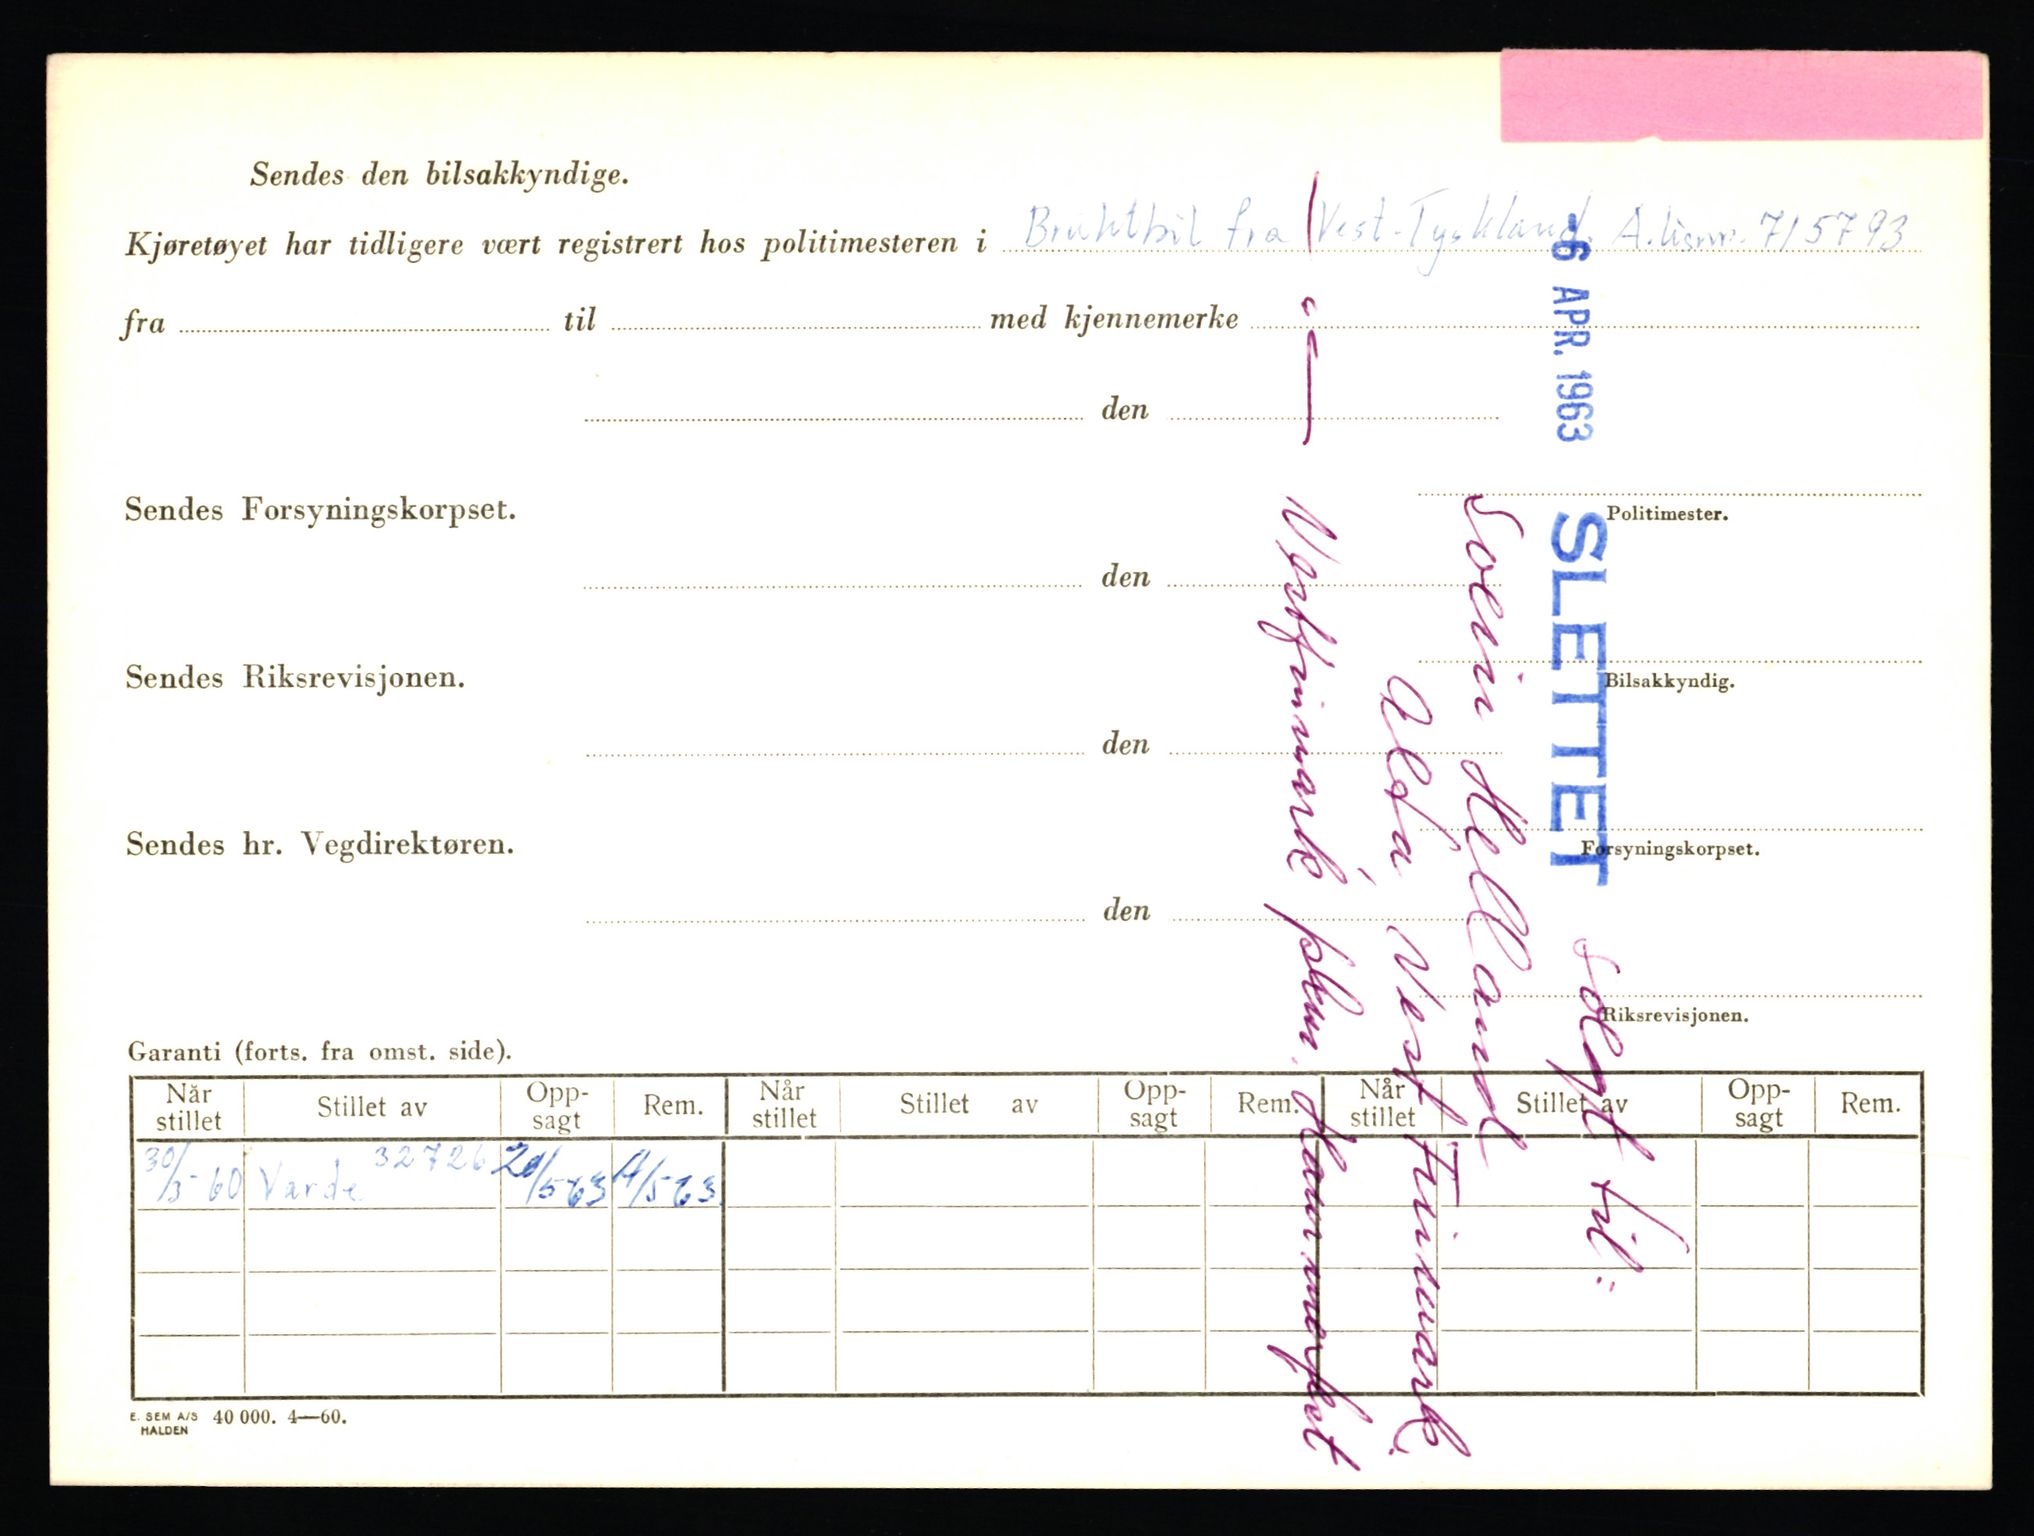 Sendes den bilsakkyndige.
Kjøretøyet har tidligere vært registrert hos politimesteren i Bruktbil fra Vest-Tyskland. A.lisnr. 715793
fra til med kjennemerke
den
Politimester.
Sendes Forsyningskorpset.
den
Bilsakkyndig.
Sendes Riksrevisjonen.
den
Forsyningskorpset.
Sendes hr. Vegdirektøren.
den
Riksrevisjonen.
-6 APR. 1963 SLETTET
solgt til:
Svein Helland
Alta, Vest Finnmark.
Vestfinnmark pkm. Hammerfest
Garanti (forts. fra omst. side).
Når stillet Stillet av Opp-sagt Rem. Når stillet Stillet av Opp-sagt Rem. Når stillet Stillet av Opp-sagt Rem.
30/3-60 Varde 32726 20/5-63 4/5-63
E. SEM A/S HALDEN 40 000. 4—60.